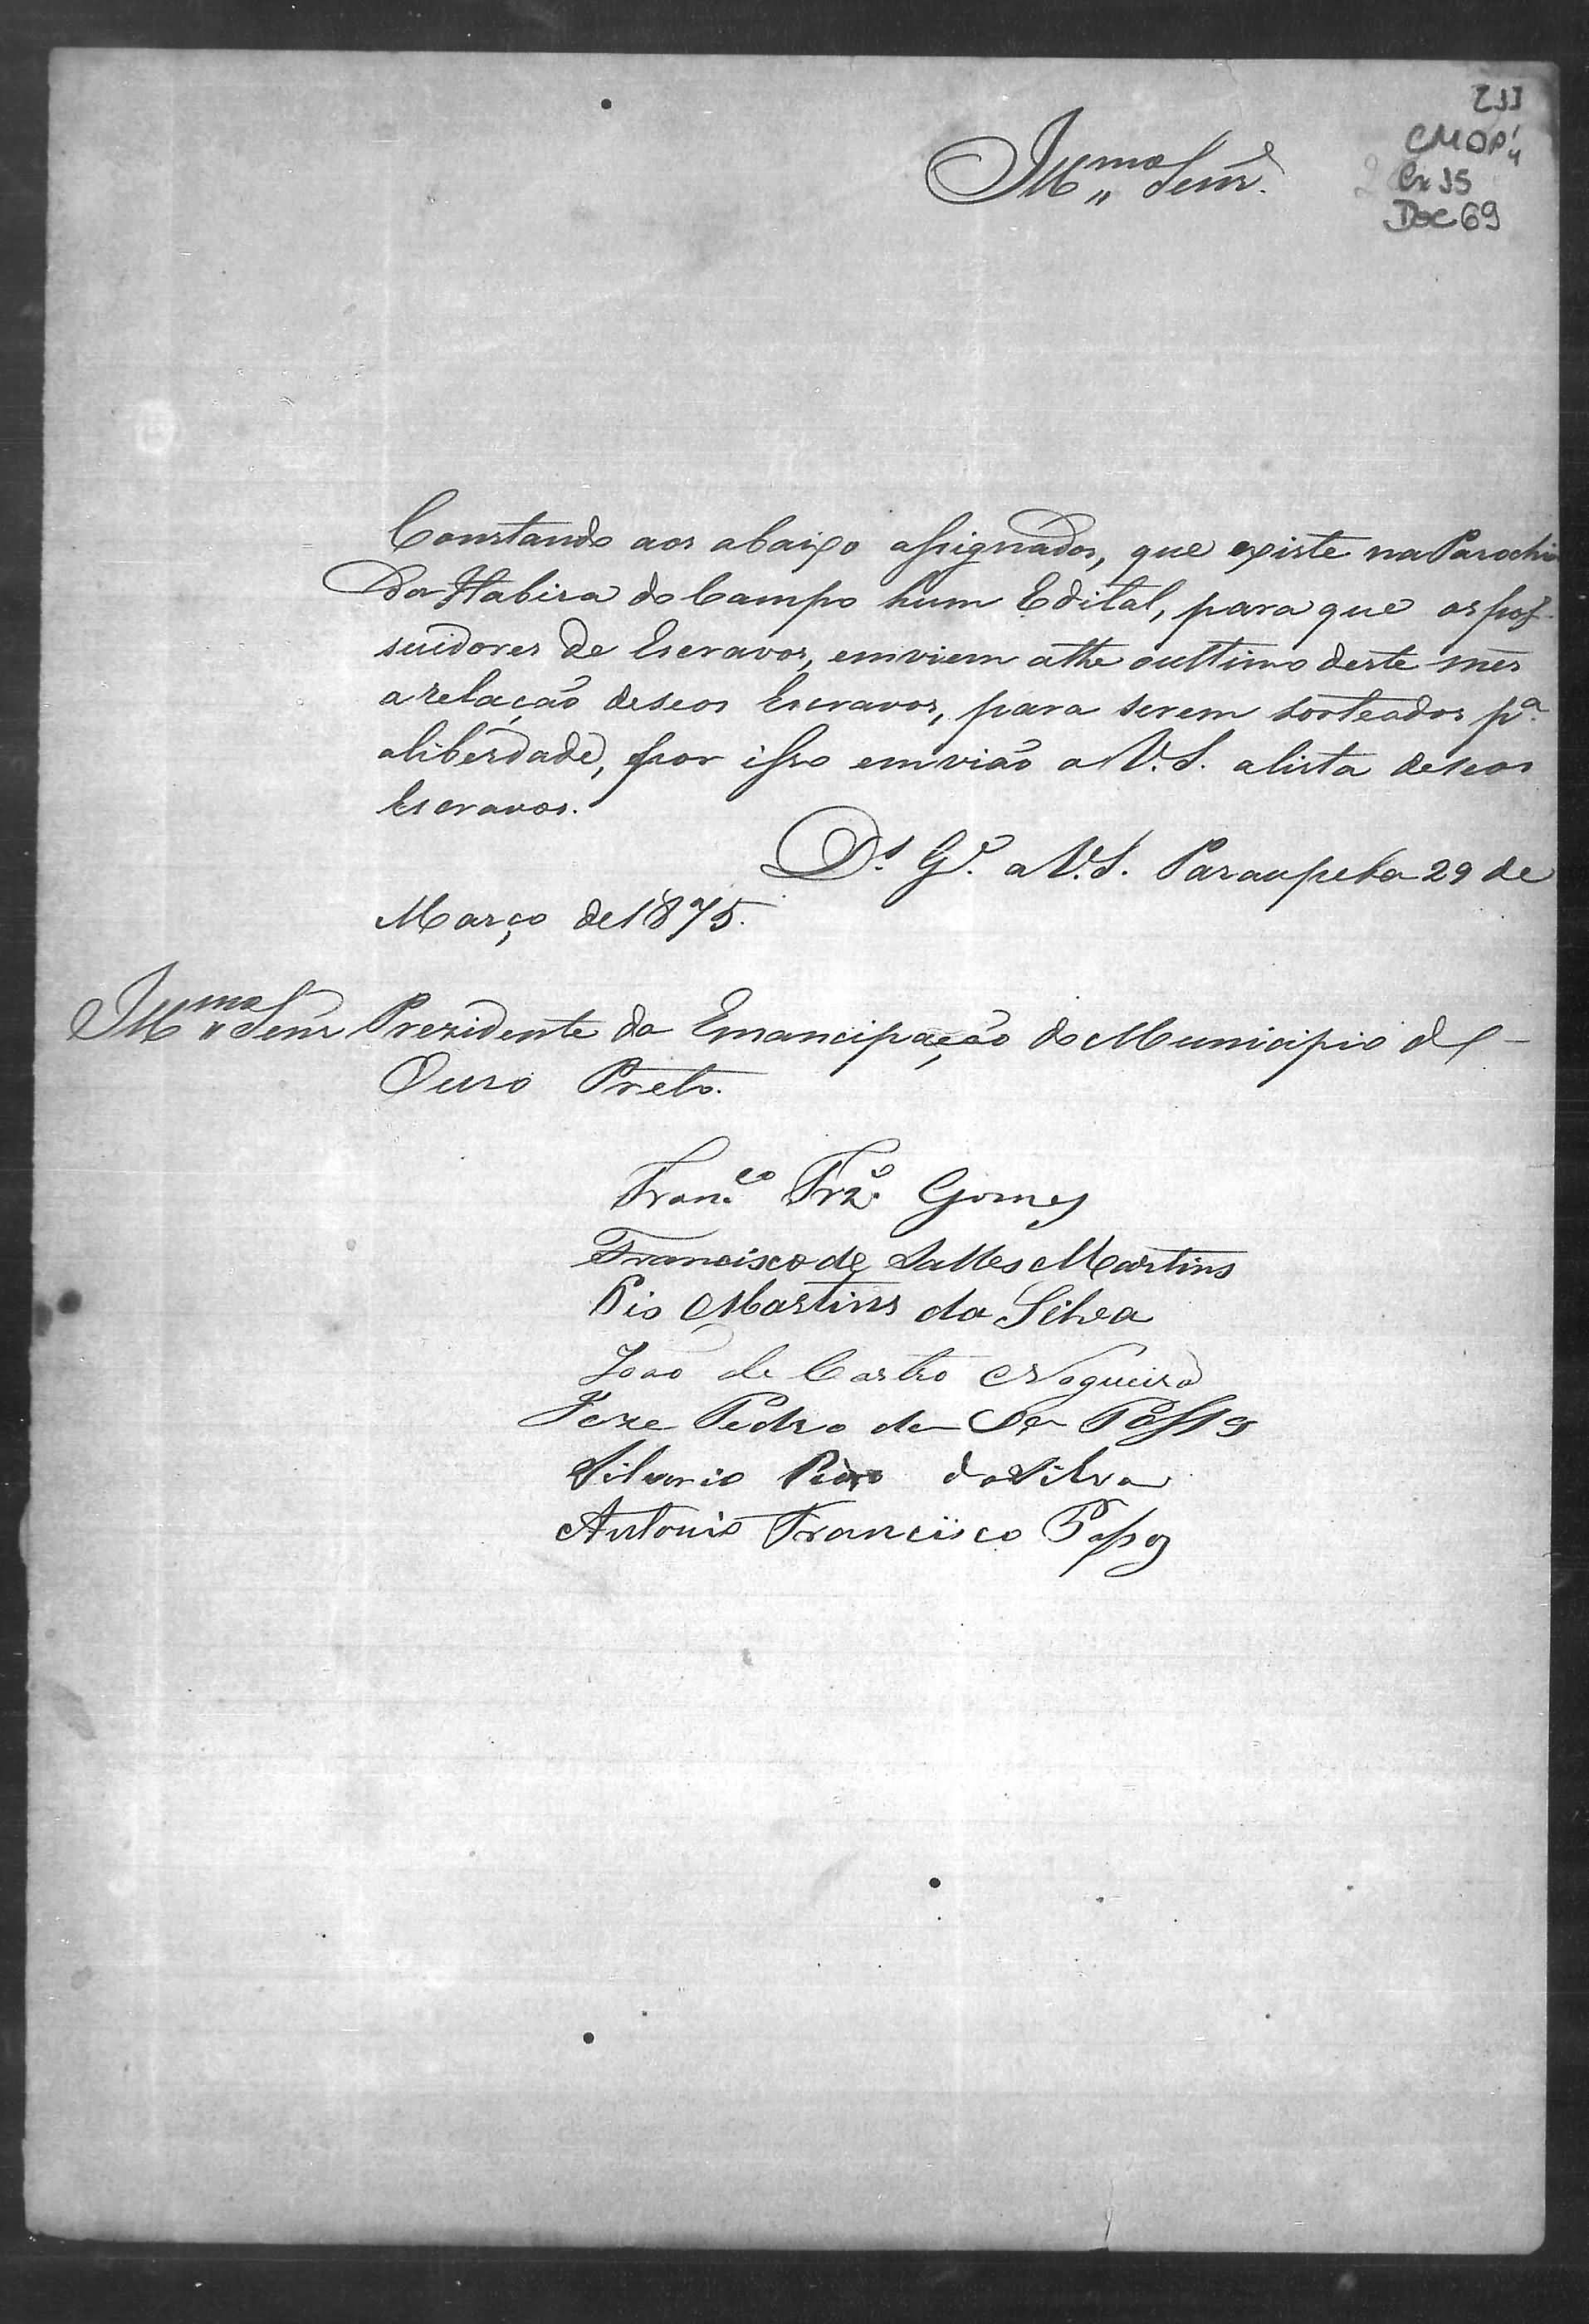 Illmo Senr.
233
CMOP
Cx 35
Doc 69
Constando aos abaixo assignados, que existe na Parochia
Da Itabira do Campo hum Edital, para que os pos-
suidores de Escravos, emviem athe oultimo deste mes
a relação deseos Escravos, para serem sorteados pa.
aliberdade, por isso emvião a V.S. alista deseos
Escravos.
Ds. Ge. a V.S. Paraupeba 29 de
Março de 1875.
Illmo Senr Prezidente da Emancipação do Municipio de
Ouro Preto.
Franco. Frz. Gomes
Francisco de Salles Martins
Pio Martins da Silva
João de Castro Nogueira
Joze Pedro da Passos
Silverio da Silva
Antonio Francisco Passos